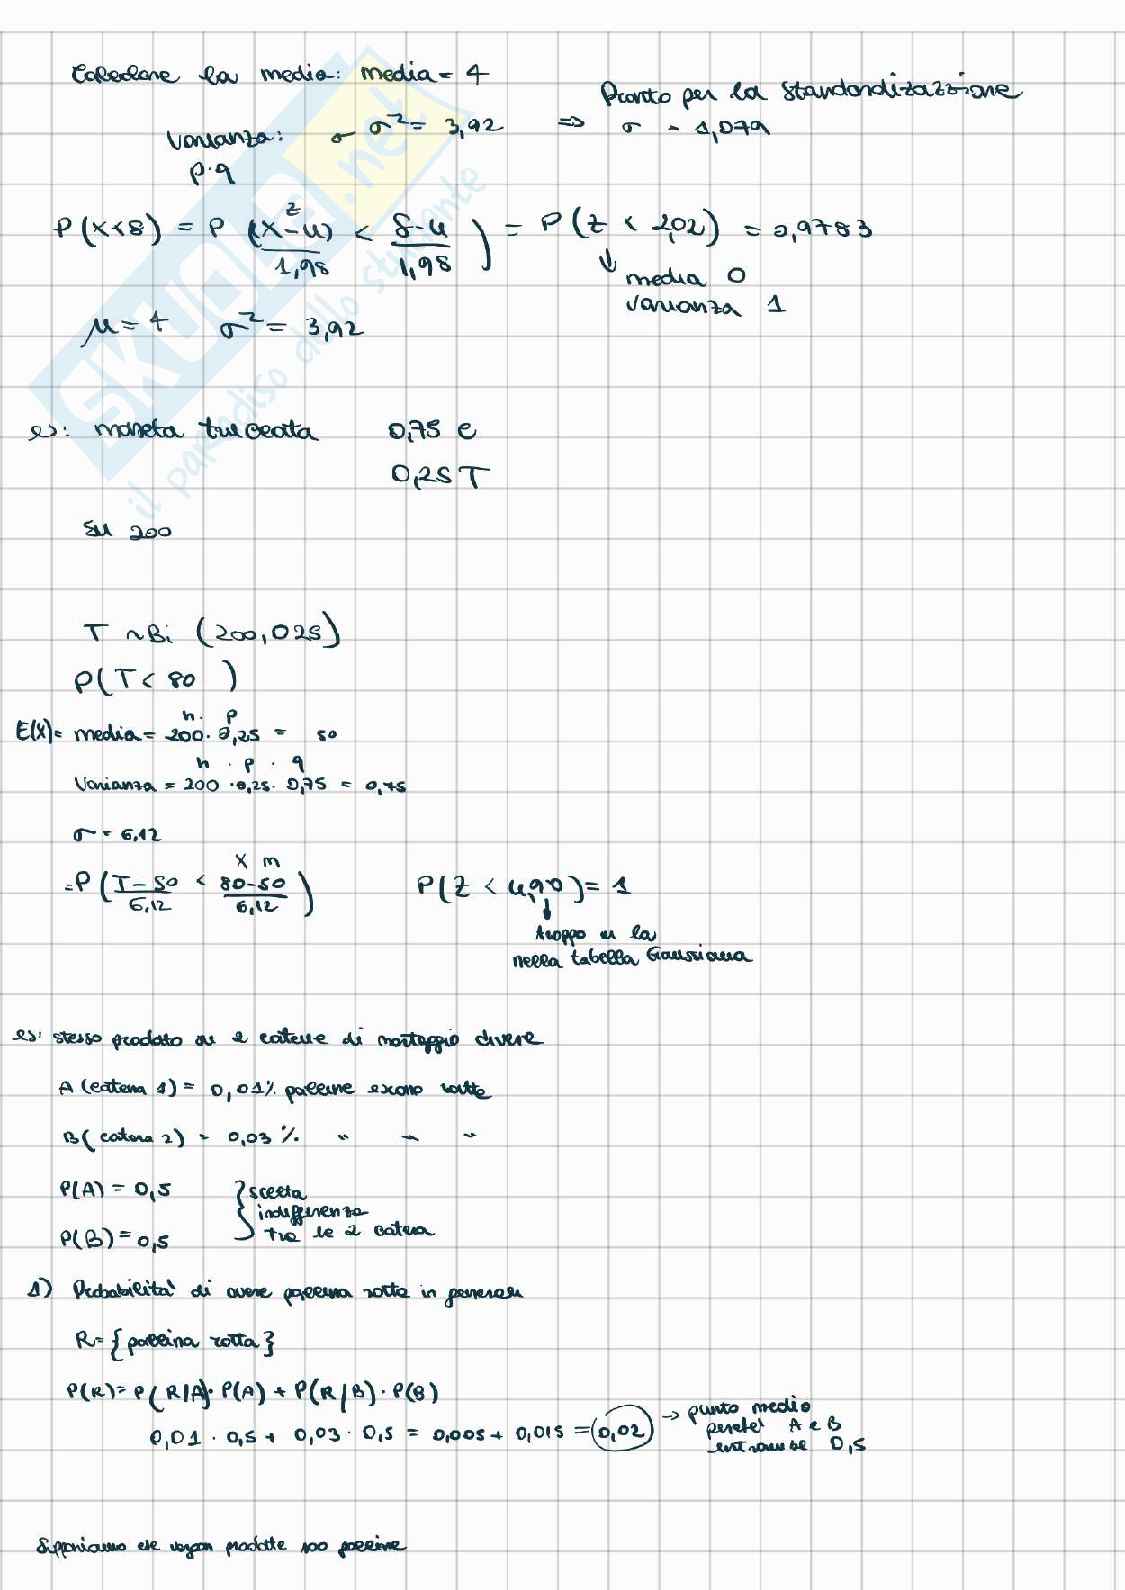 Calcolare la media: media = 4
Pronto per la standardizzazione
Varianza: σ σ² = 3,92 => σ = 1,979
p·q
z
P(X<8) = P ((X-4)/1,98 < (8-4)/1,98) = P(Z < 2,02) = 0,9783
media 0
varianza 1
μ = 4 σ² = 3,92
skuola.net
il paradiso dello studente
es: moneta truccata 0,75 C
0,25 T
su 200
T ~ Bi (200, 025)
P(T < 80 )
n · p
E(X) = media = 200 · 0,25 = 50
n · p · q
Varianza = 200 · 0,25 · 0,75 = 0,75
σ = 6,12
x m
= P ((T-50)/6,12 < (80-50)/6,12) P(Z < 4,90) = 1
troppo in la
nella tabella Gaussiana
es: stesso prodotto su 2 catene di montaggio diverse
A (catena 1) = 0,01% palline escono rotte
B (catena 2) = 0,03 % " - "
P(A) = 0,5 } scelta
indifferenza
P(B) = 0,5 tra le 2 catena
1) Probabilità di avere pallina rotta in generale
R = {pallina rotta}
P(R) = P(R|A) · P(A) + P(R|B) · P(B)
0,01 · 0,5 + 0,03 · 0,5 = 0,005 + 0,015 = 0,02 → punto medio
perché A e B
entrambe 0,5
Supponiamo che vengon prodotte 100 palline